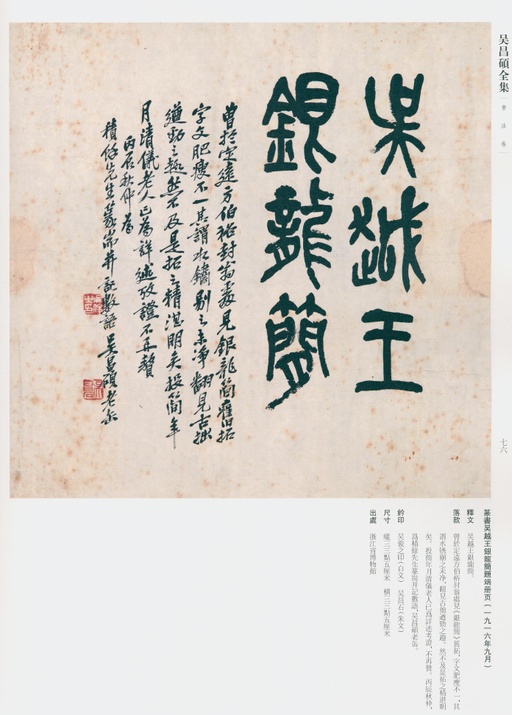 吴昌碩全集
書法卷
七六
吴越王
銀龍簡
曾於定遠方伯裕封翁處見銀龍簡舊拓
字文肥瘦不一其謂水鏽剔之未淨翻見古拙
遒勁之趣然不及是拓之精湛明矣投簡年
月清儀老人已為詳述攷證不再贅
丙辰秋仲為
積餘先生篆耑并記數語吴昌碩老缶
篆書吴越王銀龍簡題端册页（一九一六年九月）
釋文 吴越王銀龍簡。
落款 曾於定遠方伯裕封翁處見《銀龍簡》舊拓，字文肥瘦不一，其
謂水銹剔之未净，翻見古拙遒勁之趣。然不及是拓之精湛明
矣。投簡年月清儀老人已爲詳述考證，不再贅。丙辰秋仲，
爲積餘先生篆耑并記數語，吴昌碩老缶。
鈐印 吴俊之印（白文） 吴昌石（朱文）
尺寸 縱三三點五厘米 橫三三點五厘米
出處 浙江省博物館